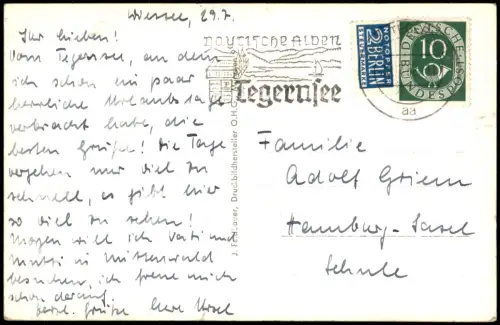 Wiessee, 29.7.
Ihr Lieben!
Vom Tegernsee, an dem
ich schon ein paar
herrliche Urlaubstage
verbracht habe, die
besten Grüße! Die Tage
vergehen nur viel zu
schnell, es gibt hier
so viel zu sehen!
Morgen will ich Vati und
Mutti in Mittenwald
besuchen, ich freue mich
schon darauf.
herzl. Grüße Eure Ursel
bayrische Alpen
Tegernsee
NOTOPFER
2 BERLIN
STEUERMARKE
10
DEUTSCHE BUNDESPOST
aa
Druck.Bildhersteller O.H.G.
Familie
Adolf Griem
Hamburg-Sasel
Schule